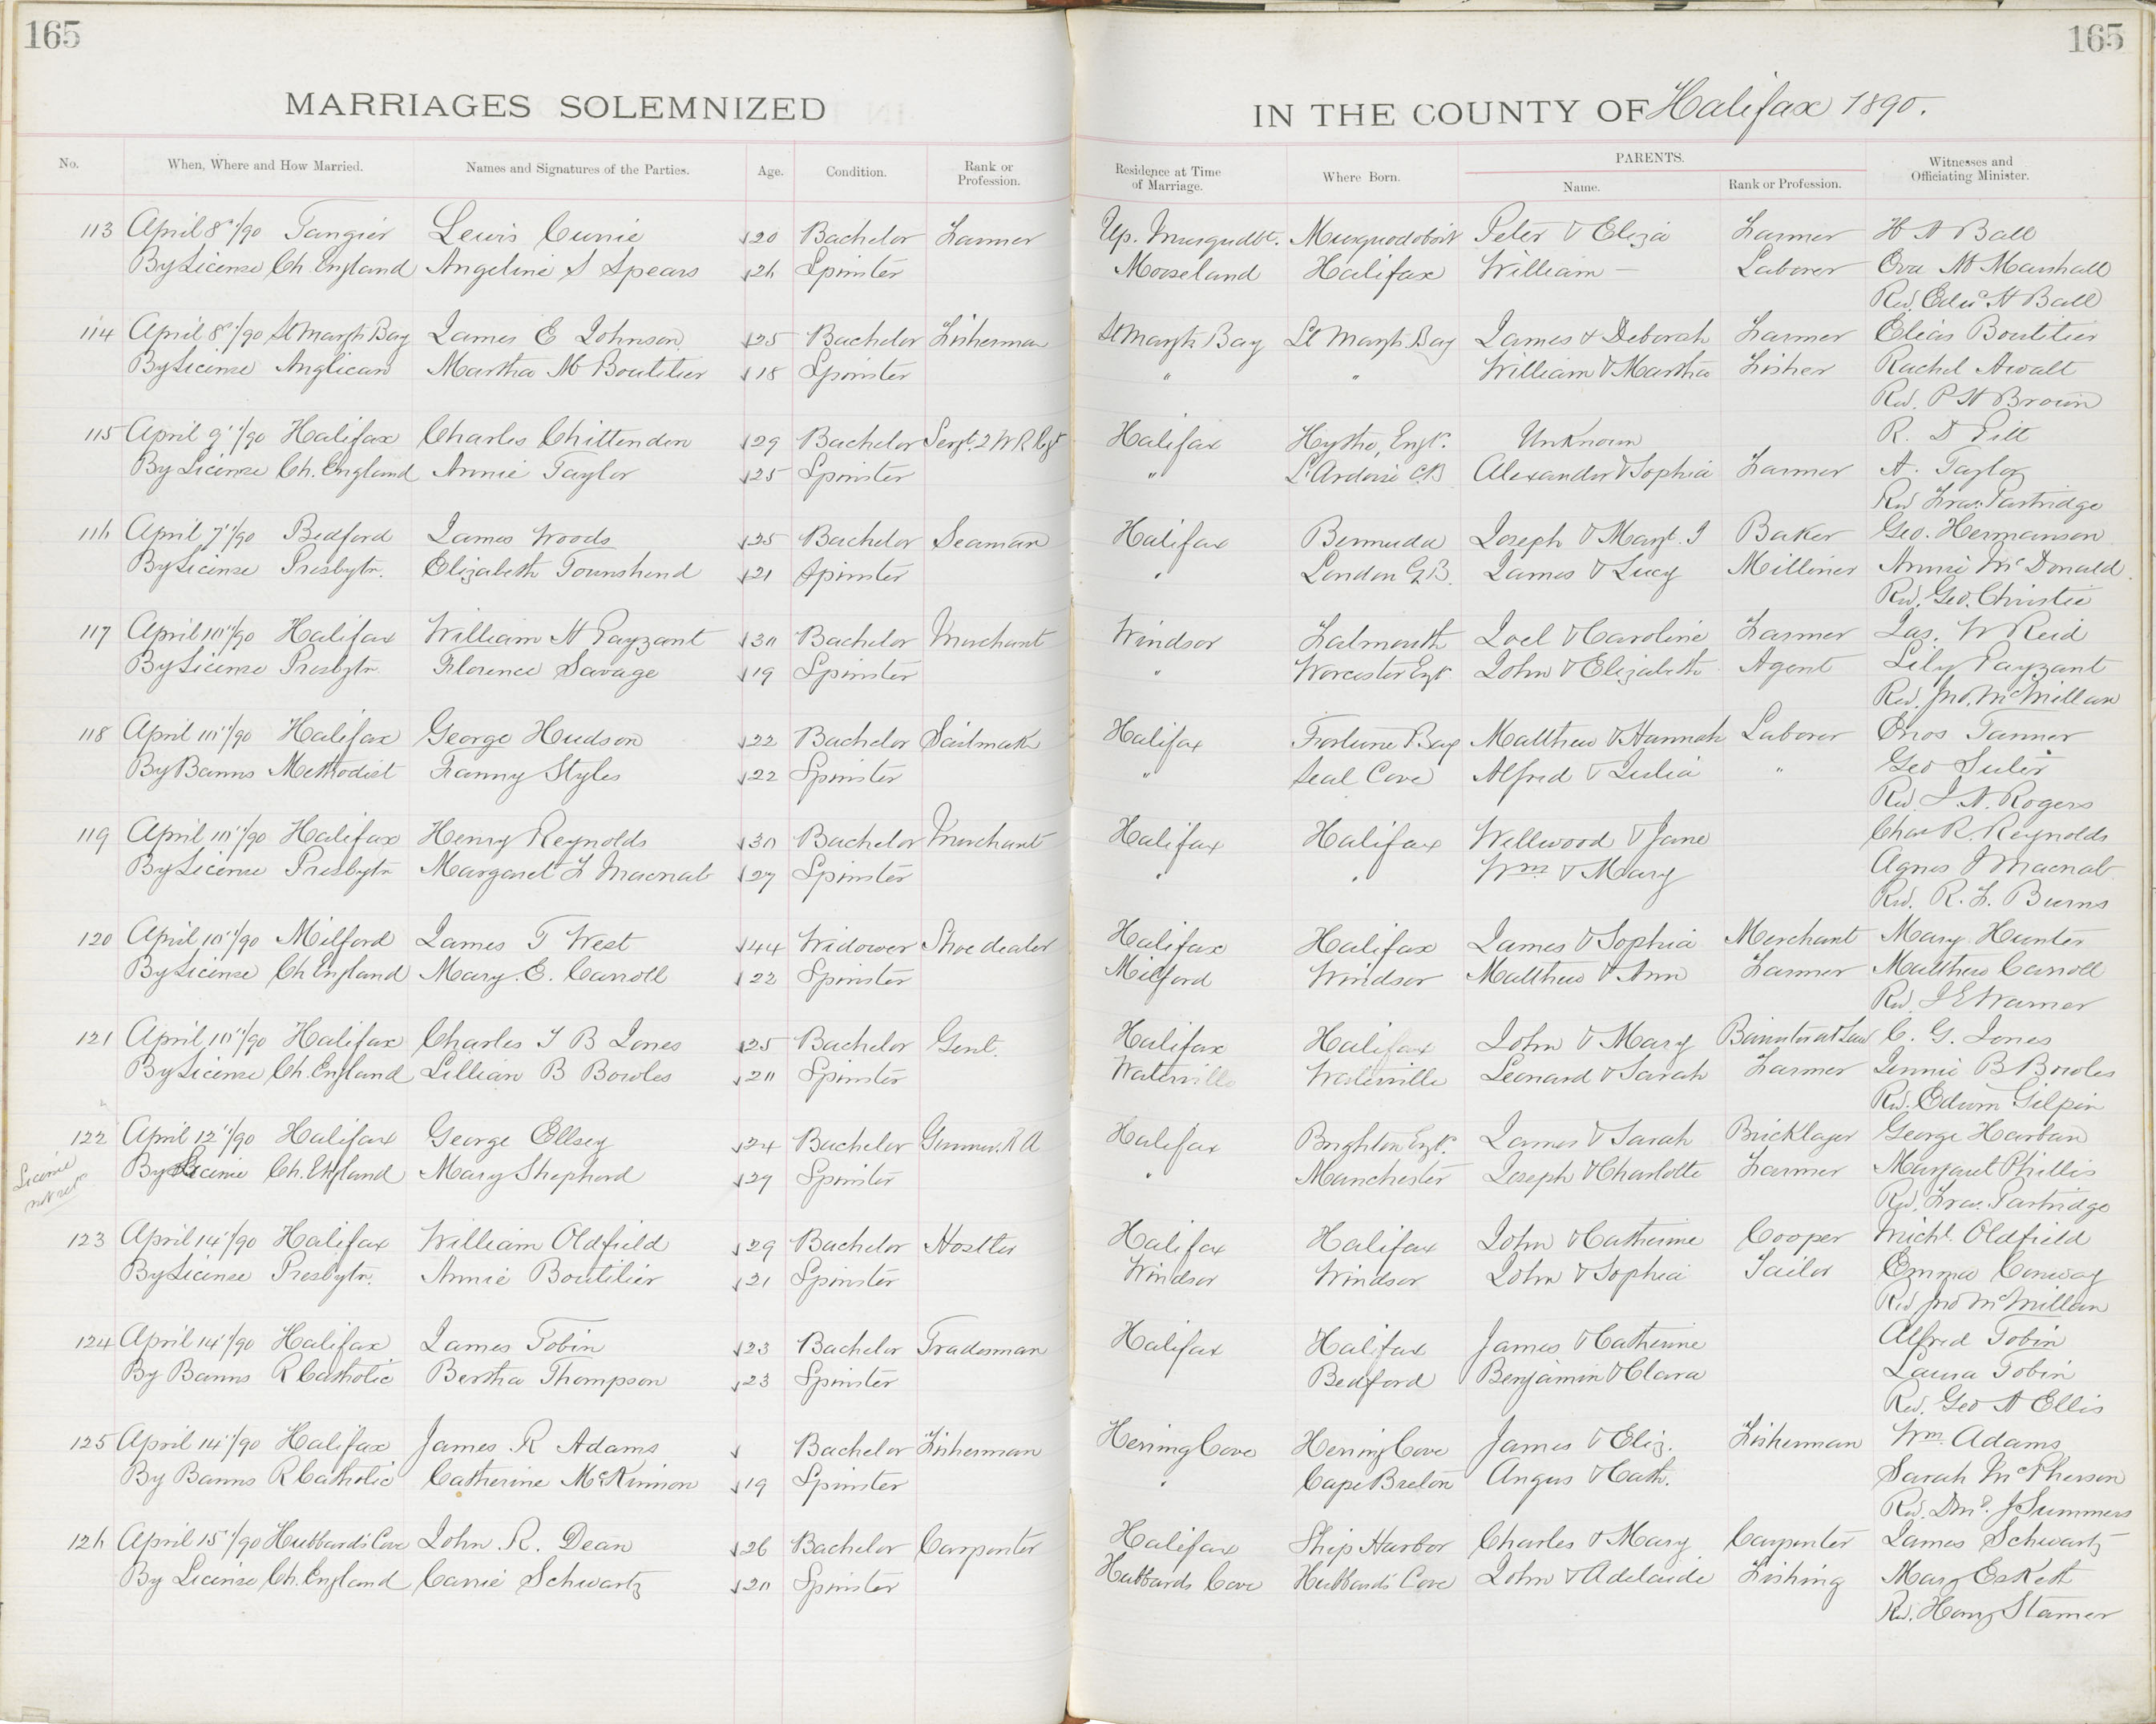 165
165
MARRIAGES SOLEMNIZED
IN THE COUNTY OF Halifax 1890.
No. When, Where and How Married. Names and Signatures of the Parties. Age. Condition. Rank or Profession. Residence at Time of Marriage. Where Born. PARENTS. Name. Rank or Profession. Witnesses and Officiating Minister.
113 April 8"/90 Tangier Lewis Cunie 20 Bachelor Farmer Up. Musqudbt. Musquodoboit Peter & Eliza Farmer H A Ball
By License Ch. England Angeline S Spears 26 Spinster Mooseland Halifax William Laborer Ora M Marshall
Rev. Edw A Ball
114 April 8"/90 St Margts Bay James E Johnson 25 Bachelor Fisherman St Margts Bay St Margts Bay James & Deborah Farmer Elias Boutilier
By License Anglican Martha M Boutilier 18 Spinster " " William & Martha Fisher Rachel Awalt
Rev. P H Brown
115 April 9"/90 Halifax Charles Chittenden 29 Bachelor Sergt. 2 W R Rgt Halifax Hythe, Engd. Unknown R. D Pitt
By License Ch. England Annie Taylor 25 Spinster " L'Ardoise C.B Alexander & Sophia Farmer A. Taylor
Rev Fras. Partridge
116 April 7"/90 Bedford James Woods 25 Bachelor Seaman Halifax Bermuda Joseph & Margt. J Baker Geo. Hermanson
By License Presbytn. Elizabeth Townshend 21 Spinster " London G.B. James & Lucy Milliner Annie McDonald
Rev. Geo. Christie
117 April 10"/90 Halifax William H Payzant 30 Bachelor Merchant Windsor Falmouth Joel & Caroline Farmer Jas. W Reid
By License Presbytn Florence Savage 19 Spinster " Worcester Engd John & Elizabeth Agent Lily Payzant
Rev. Jno. McMillan
118 April 10"/90 Halifax George Hudson 22 Bachelor Sailmaker Halifax Fortune Bay Matthew & Hannah Laborer Enos Tanner
By Banns Methodist Fanny Styles 22 Spinster " Seal Cove Alfred & Julia " Geo Suter
Rev. J. A. Rogers
119 April 10"/90 Halifax Henry Reynolds 30 Bachelor Merchant Halifax Halifax Wellwood & Jane Chas R. Reynolds
By License Presbytn Margaret F Macnab 27 Spinster " " Wm & Mary Agnes J Macnab
Rev. R. F. Burns
120 April 10"/90 Milford James T West 44 Widower Shoe dealer Halifax Halifax James & Sophia Merchant Mary Hunter
By License Ch England Mary. E. Carroll 22 Spinster Milford Windsor Matthew & Ann Farmer Matthew Carroll
Rev. J E Warner
121 April 10"/90 Halifax Charles T B Jones 25 Bachelor Gent. Halifax Halifax John & Mary Barrister at Law C. G. Jones
By License Ch. England Lillian B Bowles 20 Spinster Waterville Waterville Leonard & Sarah Farmer Jennie B Bowles
Rev. Edwin Gilpin
122 April 12"/90 Halifax George Ellsey 24 Bachelor Gunner R A Halifax Brighton Engd. James & Sarah Bricklayer George Harban
License not retd By License Ch. England Mary Shepherd 29 Spinster " Manchester Joseph & Charlotte Farmer Margaret Phillis
Rev. Fras. Partridge
123 April 14"/90 Halifax William Oldfield 29 Bachelor Hostler Halifax Halifax John & Catherine Cooper Michl. Oldfield
By License Presbytn. Annie Boutilier 21 Spinster Windsor Windsor John & Sophia Tailor Emma Conway
Rev Jno McMillan
124 April 14"/90 Halifax James Tobin 23 Bachelor Tradesman Halifax Halifax James & Catherine Alfred Tobin
By Banns R Catholic Bertha Thompson 23 Spinster Bedford Benjamin & Clara Laura Tobin
Rev. Geo A Ellis
125 April 14"/90 Halifax James R Adams Bachelor Fisherman Herring Cove Herring Cove James & Eliz. Fisherman Wm. Adams
By Banns R Catholic Catherine McKinnon 19 Spinster " Cape Breton Angus & Cath. Sarah McPherson
Rev. J Summers
126 April 15"/90 Hubbards Cove John R. Dean 26 Bachelor Carpenter Halifax Ship Harbor Charles & Mary Carpenter James Schwartz
By License Ch. England Carrie Schwartz 20 Spinster Hubbards Cove Hubbards Cove John & Adelaide Fishing Mary Eskett
Rev. Henry Stamer